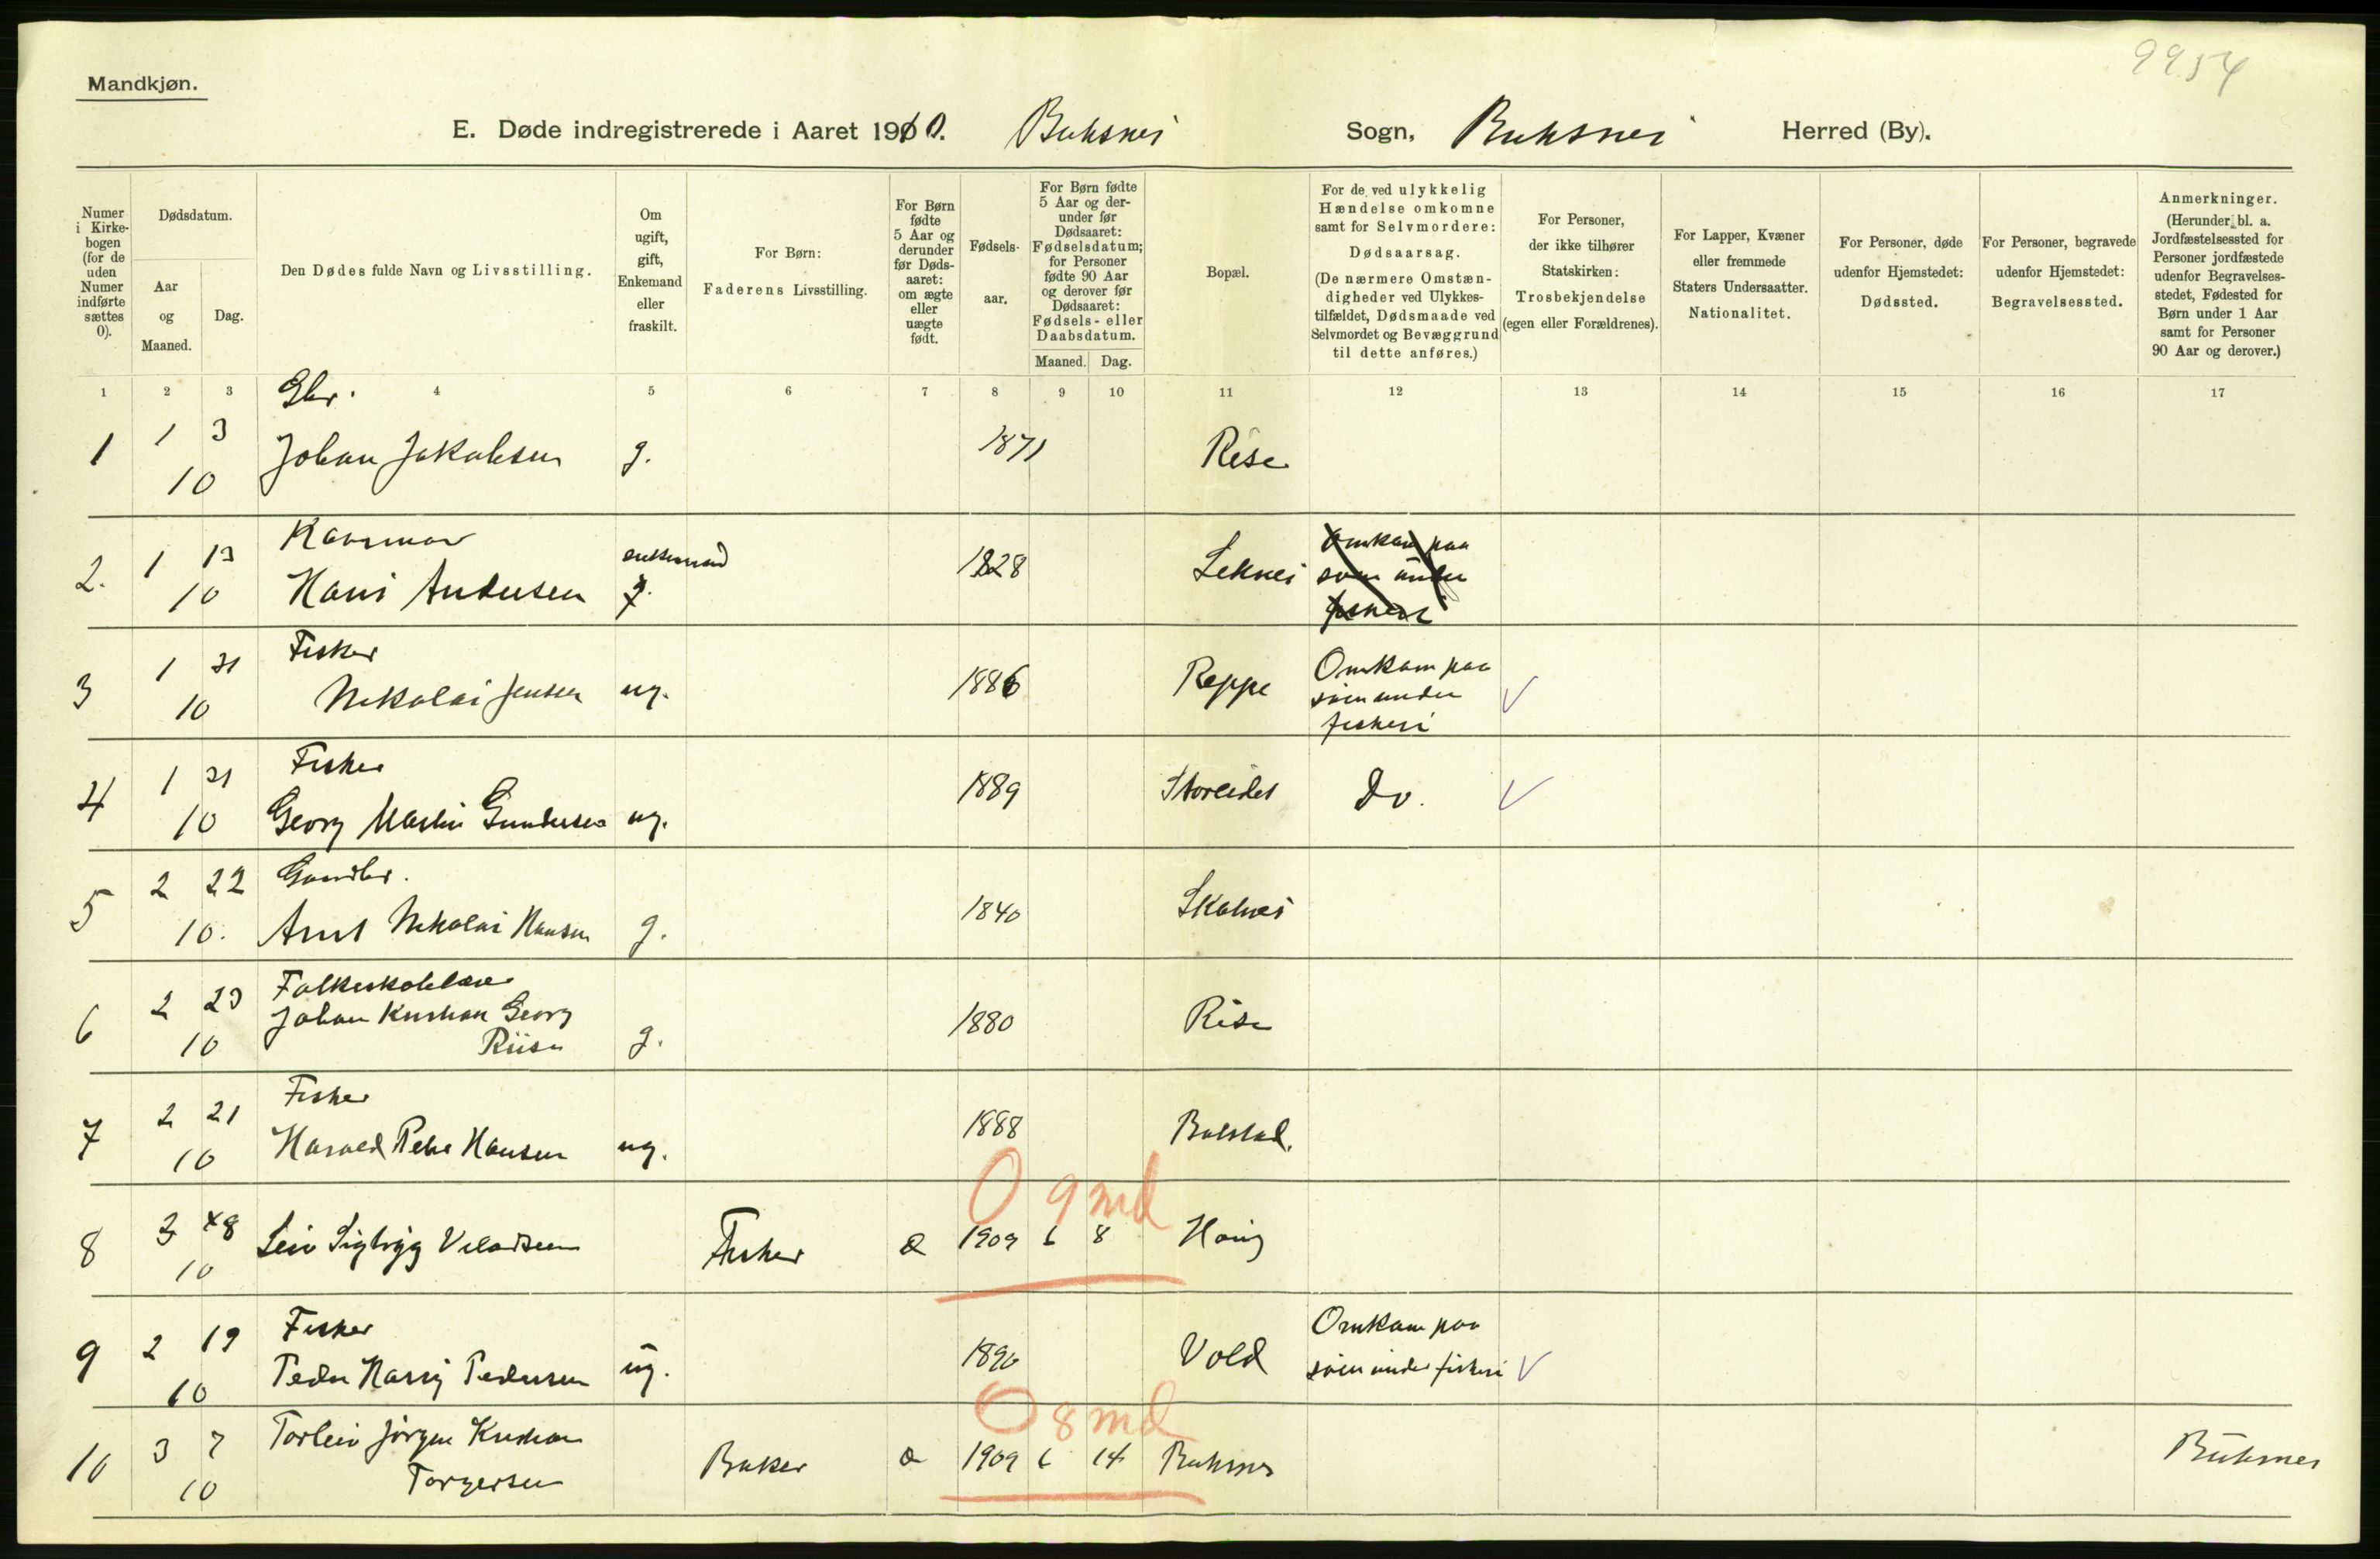 9954
Mandkjøn.
E. Døde indregistrerede i Aaret 1910. Buksnes Sogn, Buksnes Herred (By).
Numer i Kirkebogen (for de uden Numer indførte sættes 0).
Dødsdatum.
Aar og Maaned.
Dag.
Den Dødes fulde Navn og Livsstilling.
Om ugift, gift, Enkemand eller fraskilt.
For Børn: Faderens Livsstilling.
For Børn fødte 5 Aar og derunder før Dødsaaret: om ægte eller uægte født.
Fødselsaar.
For Børn fødte 5 Aar og derunder før Dødsaaret: Fødselsdatum; for Personer fødte 90 Aar og derover før Dødsaaret: Fødsels- eller Daabsdatum.
Maaned. Dag.
Bopæl.
For de ved ulykkelig Hændelse omkomne samt for Selvmordere: Dødsaarsag. (De nærmere Omstændigheder ved Ulykkestilfældet, Dødsmaade ved Selvmordet og Bevæggrund til dette anføres.)
For Personer, der ikke tilhører Statskirken: Trosbekjendelse (egen eller Forældrenes).
For Lapper, Kvæner eller fremmede Staters Undersaatter. Nationalitet.
For Personer, døde udenfor Hjemstedet: Dødssted.
For Personer, begravede udenfor Hjemstedet: Begravelsessted.
Anmerkninger. (Herunder bl. a. Jordfæstelsessted for Personer jordfæstede udenfor Begravelsesstedet, Fødested for Børn under 1 Aar samt for Personer 90 Aar og derover.)
1 2 3 4 5 6 7 8 9 10 11 12 13 14 15 16 17
Gbr.
1 1 3 Johan Jakobsen g. 1871 Rise
10
Kaarmand
2. 1 13 enkemand 1828 Leknes Omkom paa
10 Hans Andersen g. søen under
fiskeri
Fisker
3 1 31 Nikolai Jensen ug. 1886 Reppe Omkom paa
10 søen under
fiskeri
Fisker
4 1 31 1889 Storeidet Do.
10 Georg Martin Gundersen ug.
Gaardbr.
5 2 22 1840 Skalnes
10. Arnt Nikolai Hansen g.
Folkeskolelærer
6 2 23 Johan Kristian Georg 1880 Rise
10 Riise g.
Fisker
7 2 21 1888 Balstad.
10 Harald Peder Hansen ug.
0 9 md
8 3 8 Leiv Sigtryg Fisker æ 1909 6 8 Haug
10
Fisker
9 2 19 1890 Vold Omkom paa
10 Peder Harry Pedersen ug. søen under fiskeri
0 8 md
10 3 7 Torleiv Jørgen Kristian Baker æ 1909 6 14 Buksnes Buksnes
10 Torgersen